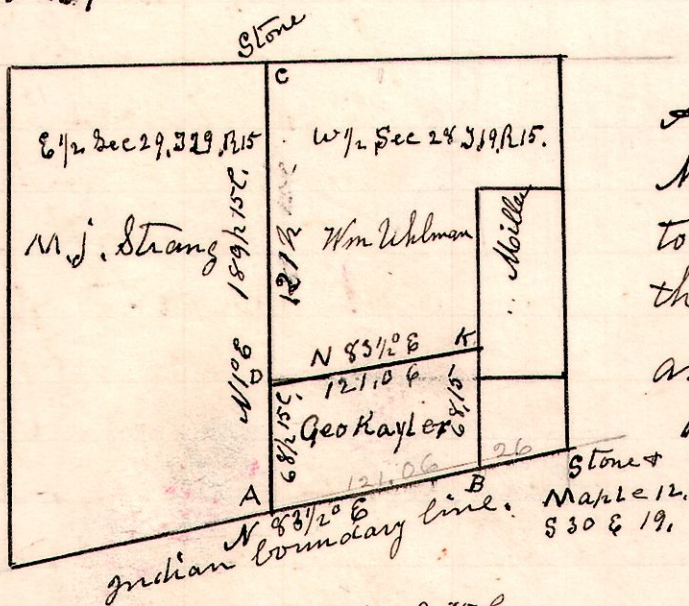 Stone
C
E 1/2 Sec 29, T29, R15
W 1/2 Sec 28 T19, R15.
M.J. Strang
189 r 15 L.
121 r
Wm Uhlman
Miller
N 1° E
N 83 1/2° E
K
D
121.06
68 r 15 L.
Geo Kayler
68,15
121.06
26
A
B
Stone &
N 83 1/2° E
Maple 12.
Indian boundary line.
S 30 E 19.
to
th